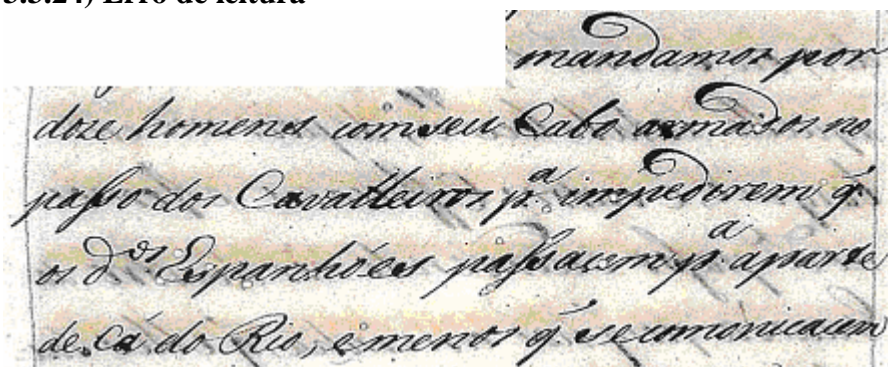 3.3.24) Erro de leitura
mandamos por
doze homens com seu Cabo armados no
passo dos Cavalleiros p.ª impedirem q.
os d.os Espanhóes passacem p.ª a parte
de Cá do Rio, e menos q. se comonicacem